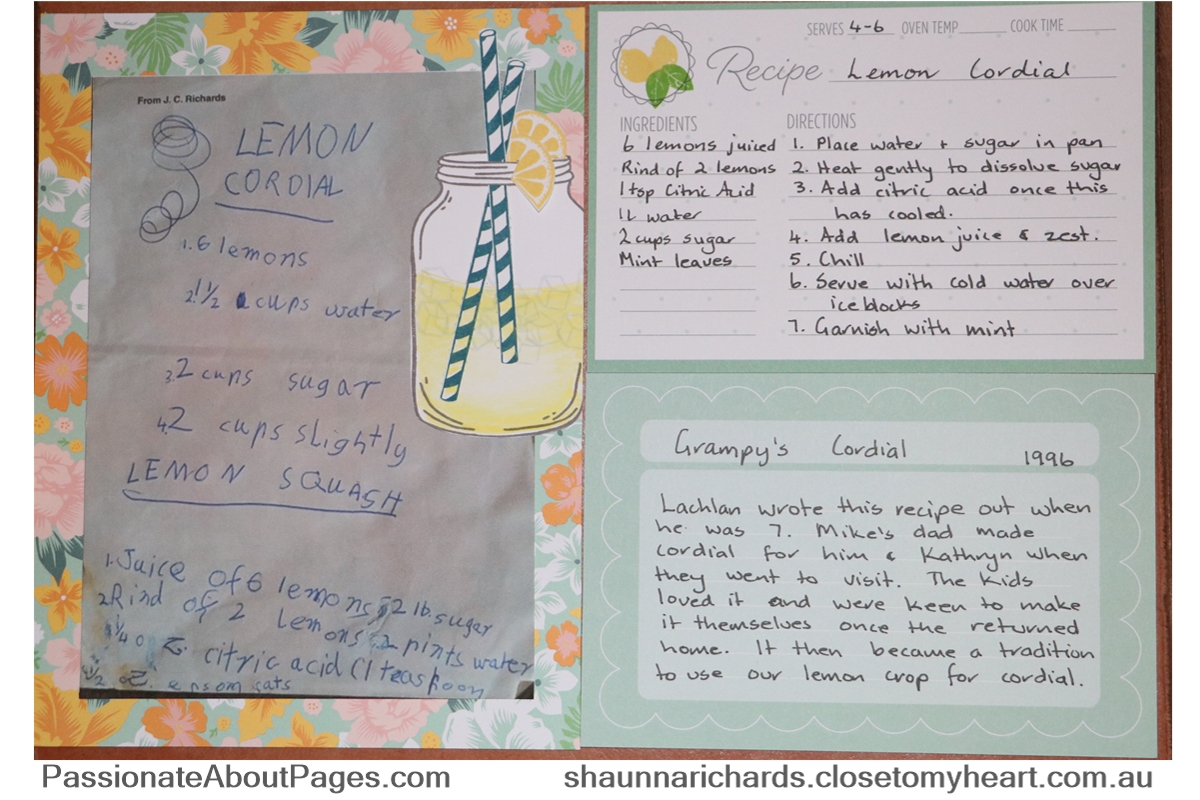 From J. C. Richards
LEMON
CORDIAL
1. 6 lemons
2. 1/2 cups water
3. 2 cups sugar
4. 2 cups slightly
LEMON SQUASH
1. Juice of 6 lemons 2 lb. sugar
2. Rind of 2 lemons 2 pints water
1/4 oz. citric acid (1 teaspoon
1/2 oz. epsom sats
SERVES 4-6 OVEN TEMP COOK TIME
Recipe Lemon Cordial
INGREDIENTS
6 lemons juiced
Rind of 2 lemons
1 tsp Citric Acid
1L water
2 cups sugar
Mint leaves
DIRECTIONS
1. Place water + sugar in pan
2. Heat gently to dissolve sugar
3. Add citric acid once this
has cooled.
4. Add lemon juice & zest.
5. Chill
6. Serve with cold water over
iceblocks
7. Garnish with mint
Grampy's Cordial 1996
Lachlan wrote this recipe out when
he was 7. Mike's dad made
cordial for him & Kathryn when
they went to visit. The Kids
loved it and were keen to make
it themselves once the returned
home. It then became a tradition
to use our lemon crop for cordial.
PassionateAboutPages.com
shaunnarichards.closetomyheart.com.au